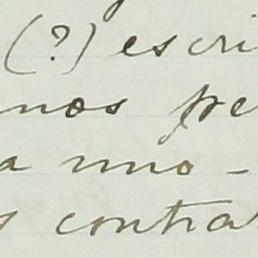 (?) escri
nos pe
a uno -
s contra